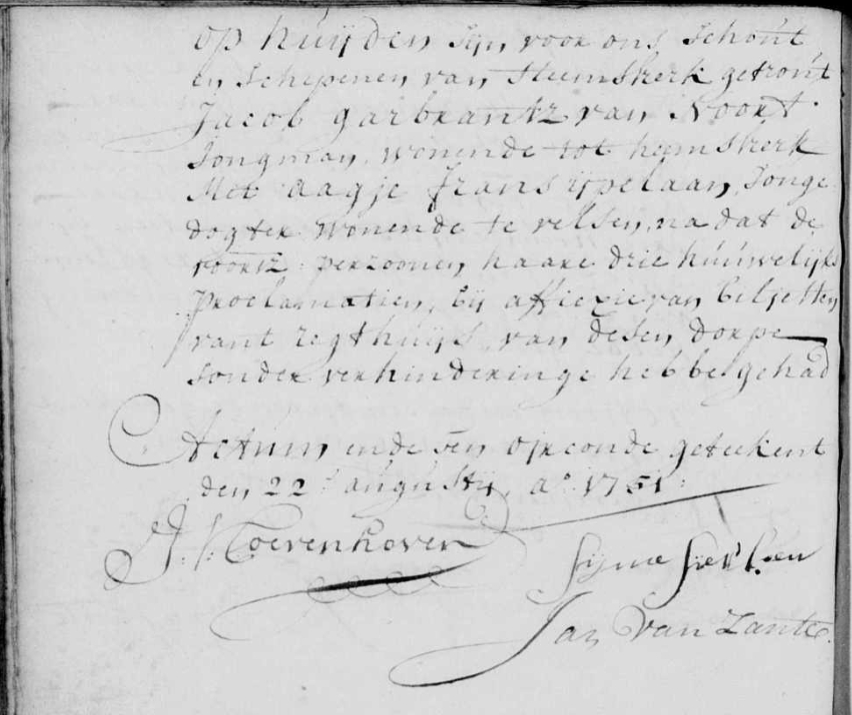 op huijden sijn voor ons Schout
en Schepenen van Heemskerk getrout
Jacob garbrantz van Noort
Jongman wonende tot heemskerk
Met aagje frans ijpelaan Jonge
dogter wonende te velsen, na dat de
voorsz. perzoonen haare drie huuwelijks
proclamatien, bij affiexie van biljetten
vant regthuijs van desen dorpe
sonder verhinderinge hebbe gehad
Actum ende ten oirconde geteekent
den 22 augustij aº 1751
J. Coevenhoven
Sijme
Jan van Zante